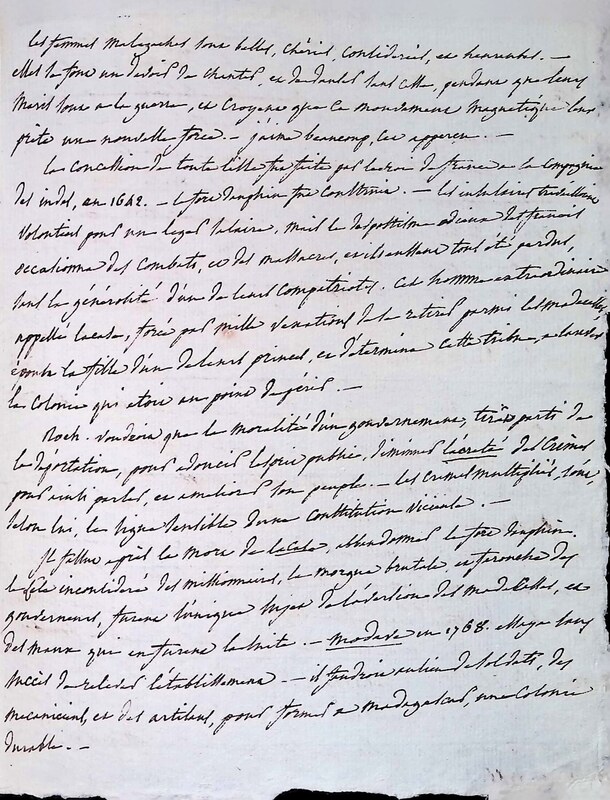 les femmes malegaches sont belles, cheries, considerées, et heureuses. —
elles se font un devoir de chanter, et de danser sans cesse, pendant que leurs
maris sont a la guerre, et croyent que ce mouvement magnetique leur
prête une nouvelle force. — j'aime beaucoup, cet apperçu. —
la concession de toute l'isle fut faite par le roi de france a la Compagnie
des indes, en 1642. — le fort dauphin fut construit. — les insulaires travailloient
volontiers pour un leger salaire, mais le despotisme odieux des françois
occasionna des combats, et des massacres, et ils eussent tous été perdus,
sans la générosité d'un de leurs compatriotes. Cet homme extraordinaire
appellé lacase, forcé par mille vexations de se retirer parmi les madecasses,
épousa la fille d'un de leurs princes, et détermina cette tribu, a sauver
la Colonie qui étoit au point de périr. —
Roch. voudroit que la moralité d'un gouvernement, tirât parti de
la déportation, pour adoucir le sort public, diminuer l'acreté des crimes
pour ainsi parler, et ameliorer son peuple. — les crimes multipliés, sont,
selon lui, le signe sensible d'une constitution vicieuse. —
Il fallut après la mort de lacase, abandonner le fort dauphin.
le zèle inconsideré des missionnaires, la morgue brutale, et farouche des
gouverneurs, furent l'unique sujet de l'aversion des madecasses, et
des maux qui en furent la suite. — modave en 1768. essaya sans
succès de relever l'établissement. — il faudroit au lieu de soldats, des
mecaniciens, et des artisans, pour former a madagascar, une colonie
durable. —